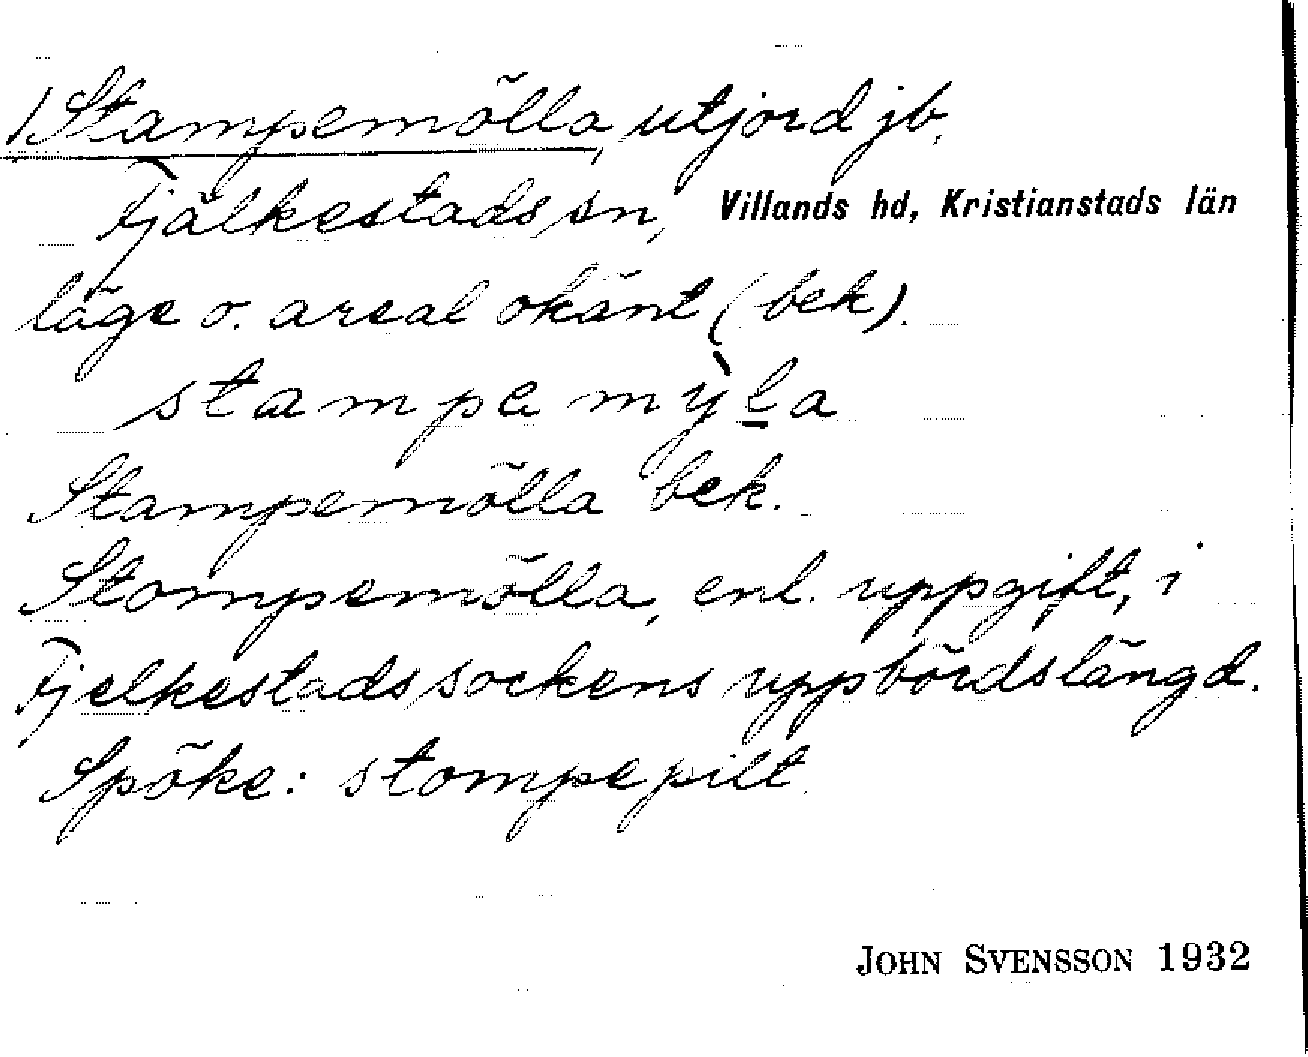 1 Stampemölla, utjord jb,
Fjälkestads sn, Villands hd, Kristianstads län
läge o. areal okänt (bek).
stampa mỳla
Stampemölla bek.
Stompemölla, enl. uppgift, i
Fjelkestads sockens uppbördslängd.
Spöke: stompepilt.
JOHN SVENSSON 1932